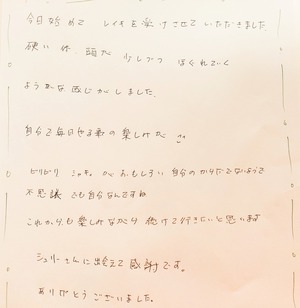 今日始めて レイキを受けさせていただきました
硬い体、頭が 少しづつ ほぐれていく
ような感じがしました。
自分で毎日やる事の楽しみが
ビリビリ 自分のからだでないようで
不思議 でも自分なんですね
これからも楽しみながら 続けて行きたいと思います
シュリーさんに出会えて感謝です。
ありがとうございました。